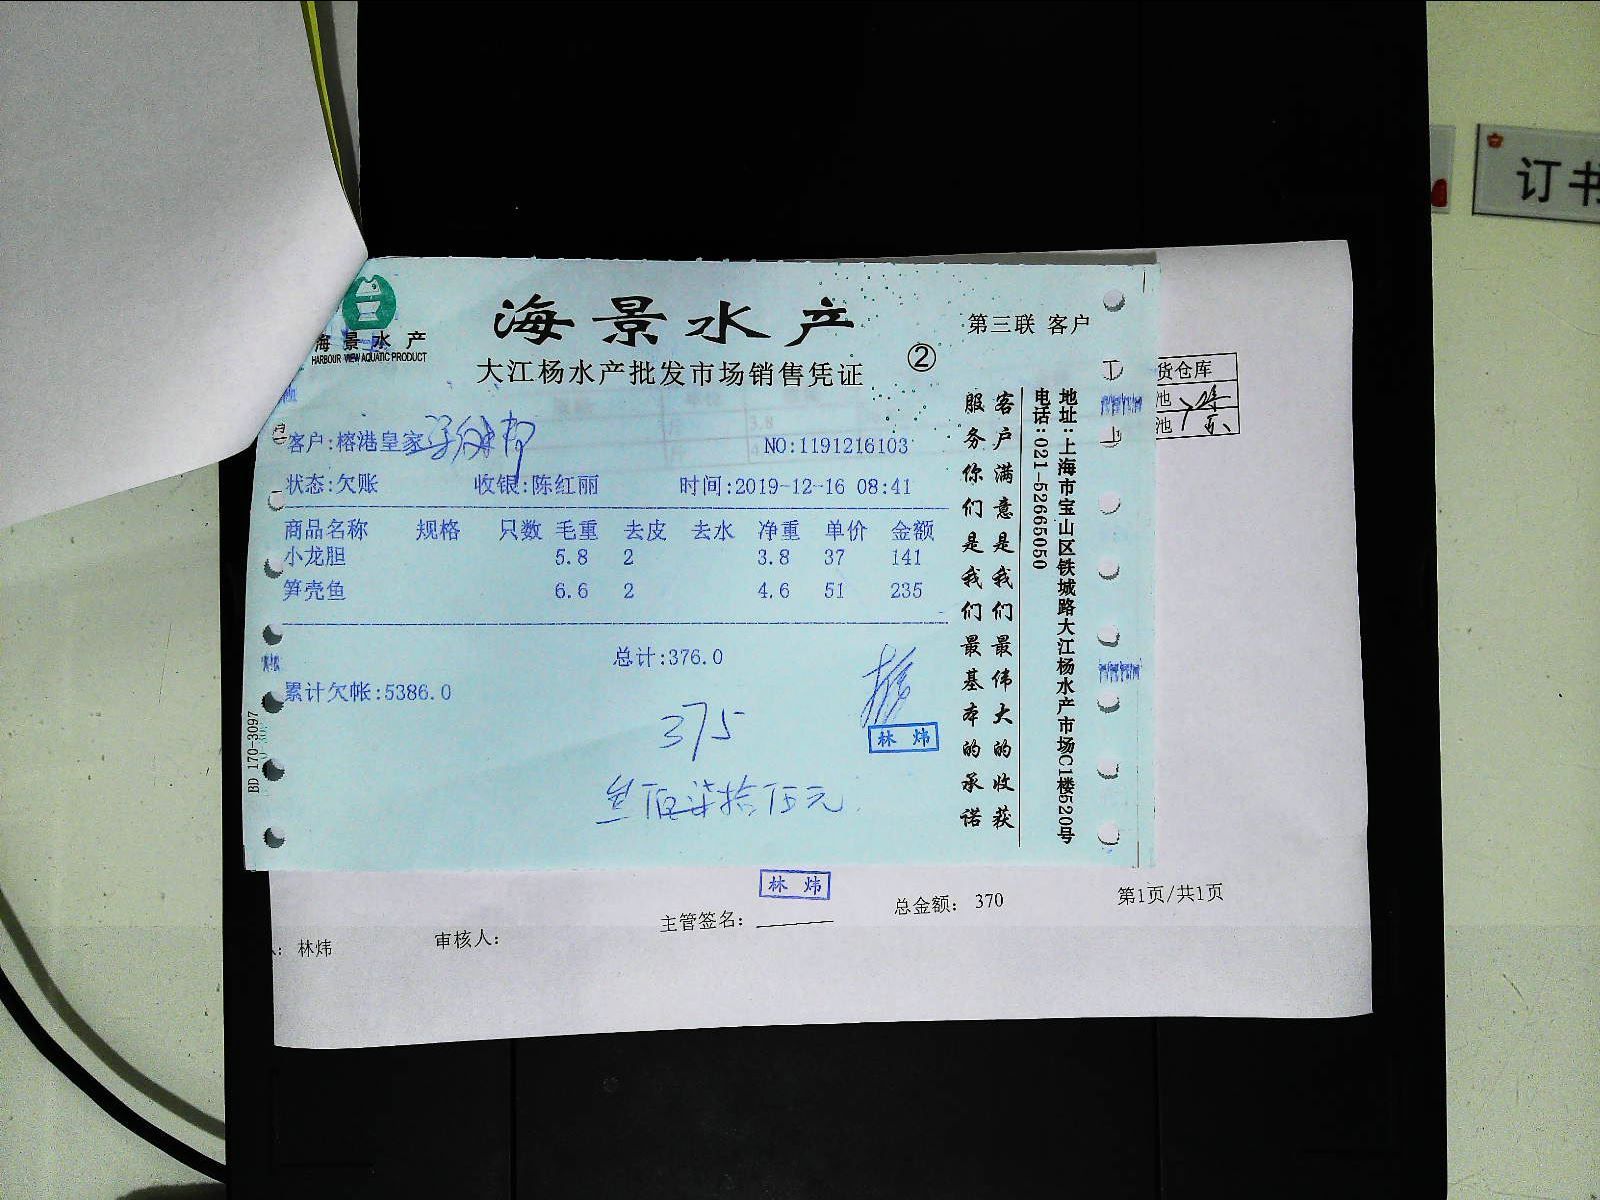 订书
海景水产
HARBOUR VIEW AQUATIC PRODUCT
海景水产
大江杨水产批发市场销售凭证
②
第三联 客户
客户:榕港皇家
NO:1191216103
状态:欠账 收银:陈红丽 时间:2019-12-16 08:41
商品名称 规格 只数 毛重 去皮 去水 净重 单价 金额
小龙胆 5.8 2 3.8 37 141
笋壳鱼 6.6 2 4.6 51 235
总计:376.0
累计欠帐:5386.0
375
叁佰柒拾伍元
林炜
客户满意是我们最伟大的收获
服务你们是我们最基本的承诺
地址:上海市宝山区铁城路大江杨水产市场C1楼520号
电话:021-52665050
BD 170-3097
货仓库
池
池
林炜
主管签名:
总金额: 370
第1页/共1页
林炜
审核人: